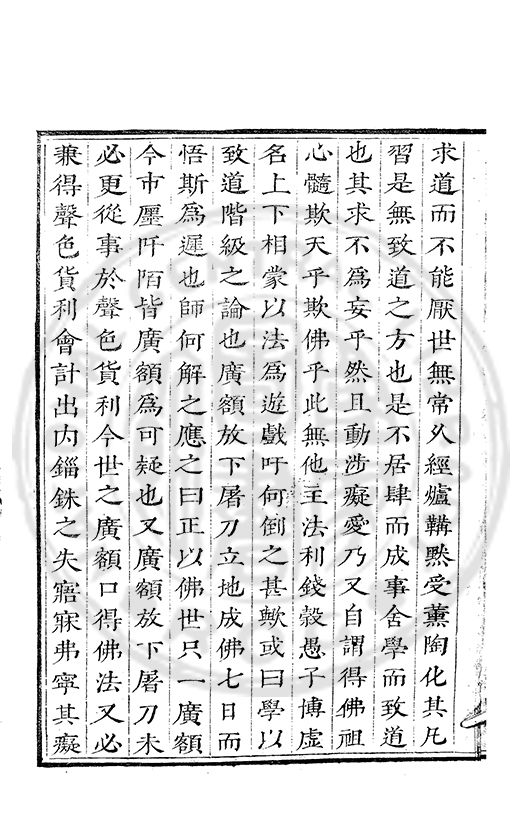 求道而不能厭世無常久經爐鞲㷱受薰陶化其凡
習是無致道之方也是不居肆而成事舍學而致道
也其求不爲妄乎然且動涉癡愛乃又自謂得佛祖
心髓欺天乎欺佛乎此無他主法利錢穀愚子博虛
名上下相蒙以法爲遊戲吁何倒之甚歟或曰學以
致道階級之論也廣額放下屠刀立地成佛七日而
悟斯爲遲也師何解之應之曰正以佛世只一廣額
今市廛阡陌皆廣額爲可疑也又廣額放下屠刀未
必更從事於聲色貨利今世之廣額口得佛法又必
兼得聲色貨利會計出内錙銖之失寤寐弗寧其癡